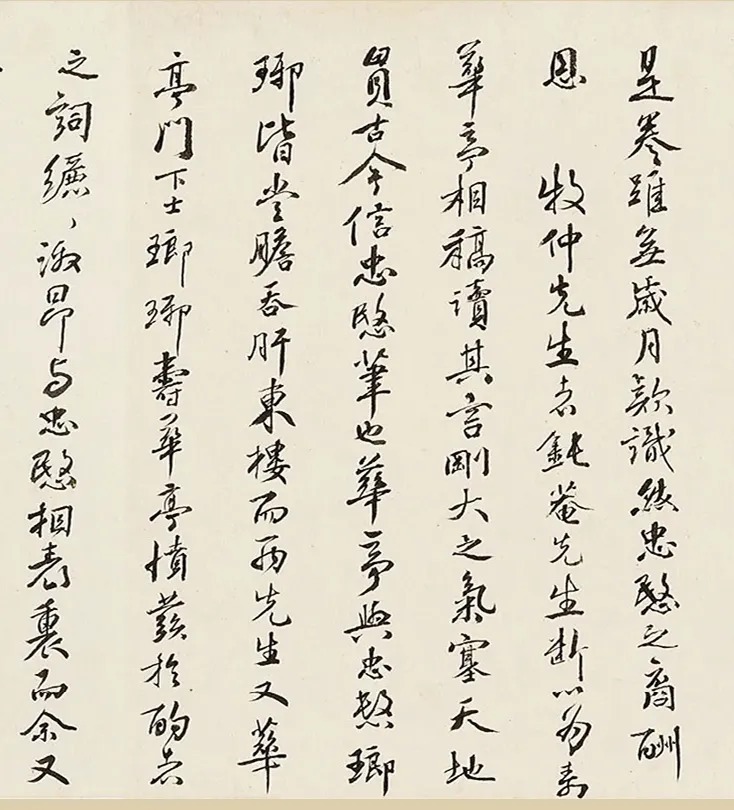 是卷雖無歲月欵識然忠愍之裔酬
恩 牧仲先生志鈍菴先生斷以為壽
華亭相稿讀其言剛大之氣塞天地
貫古今信忠愍筆也華亭與忠愍瑯
琊皆嘗膽吞肝東樓而兩先生又華
亭門下士瑯琊壽華亭憤於酌
之詞纚纚激昂與忠愍相表裏而余又